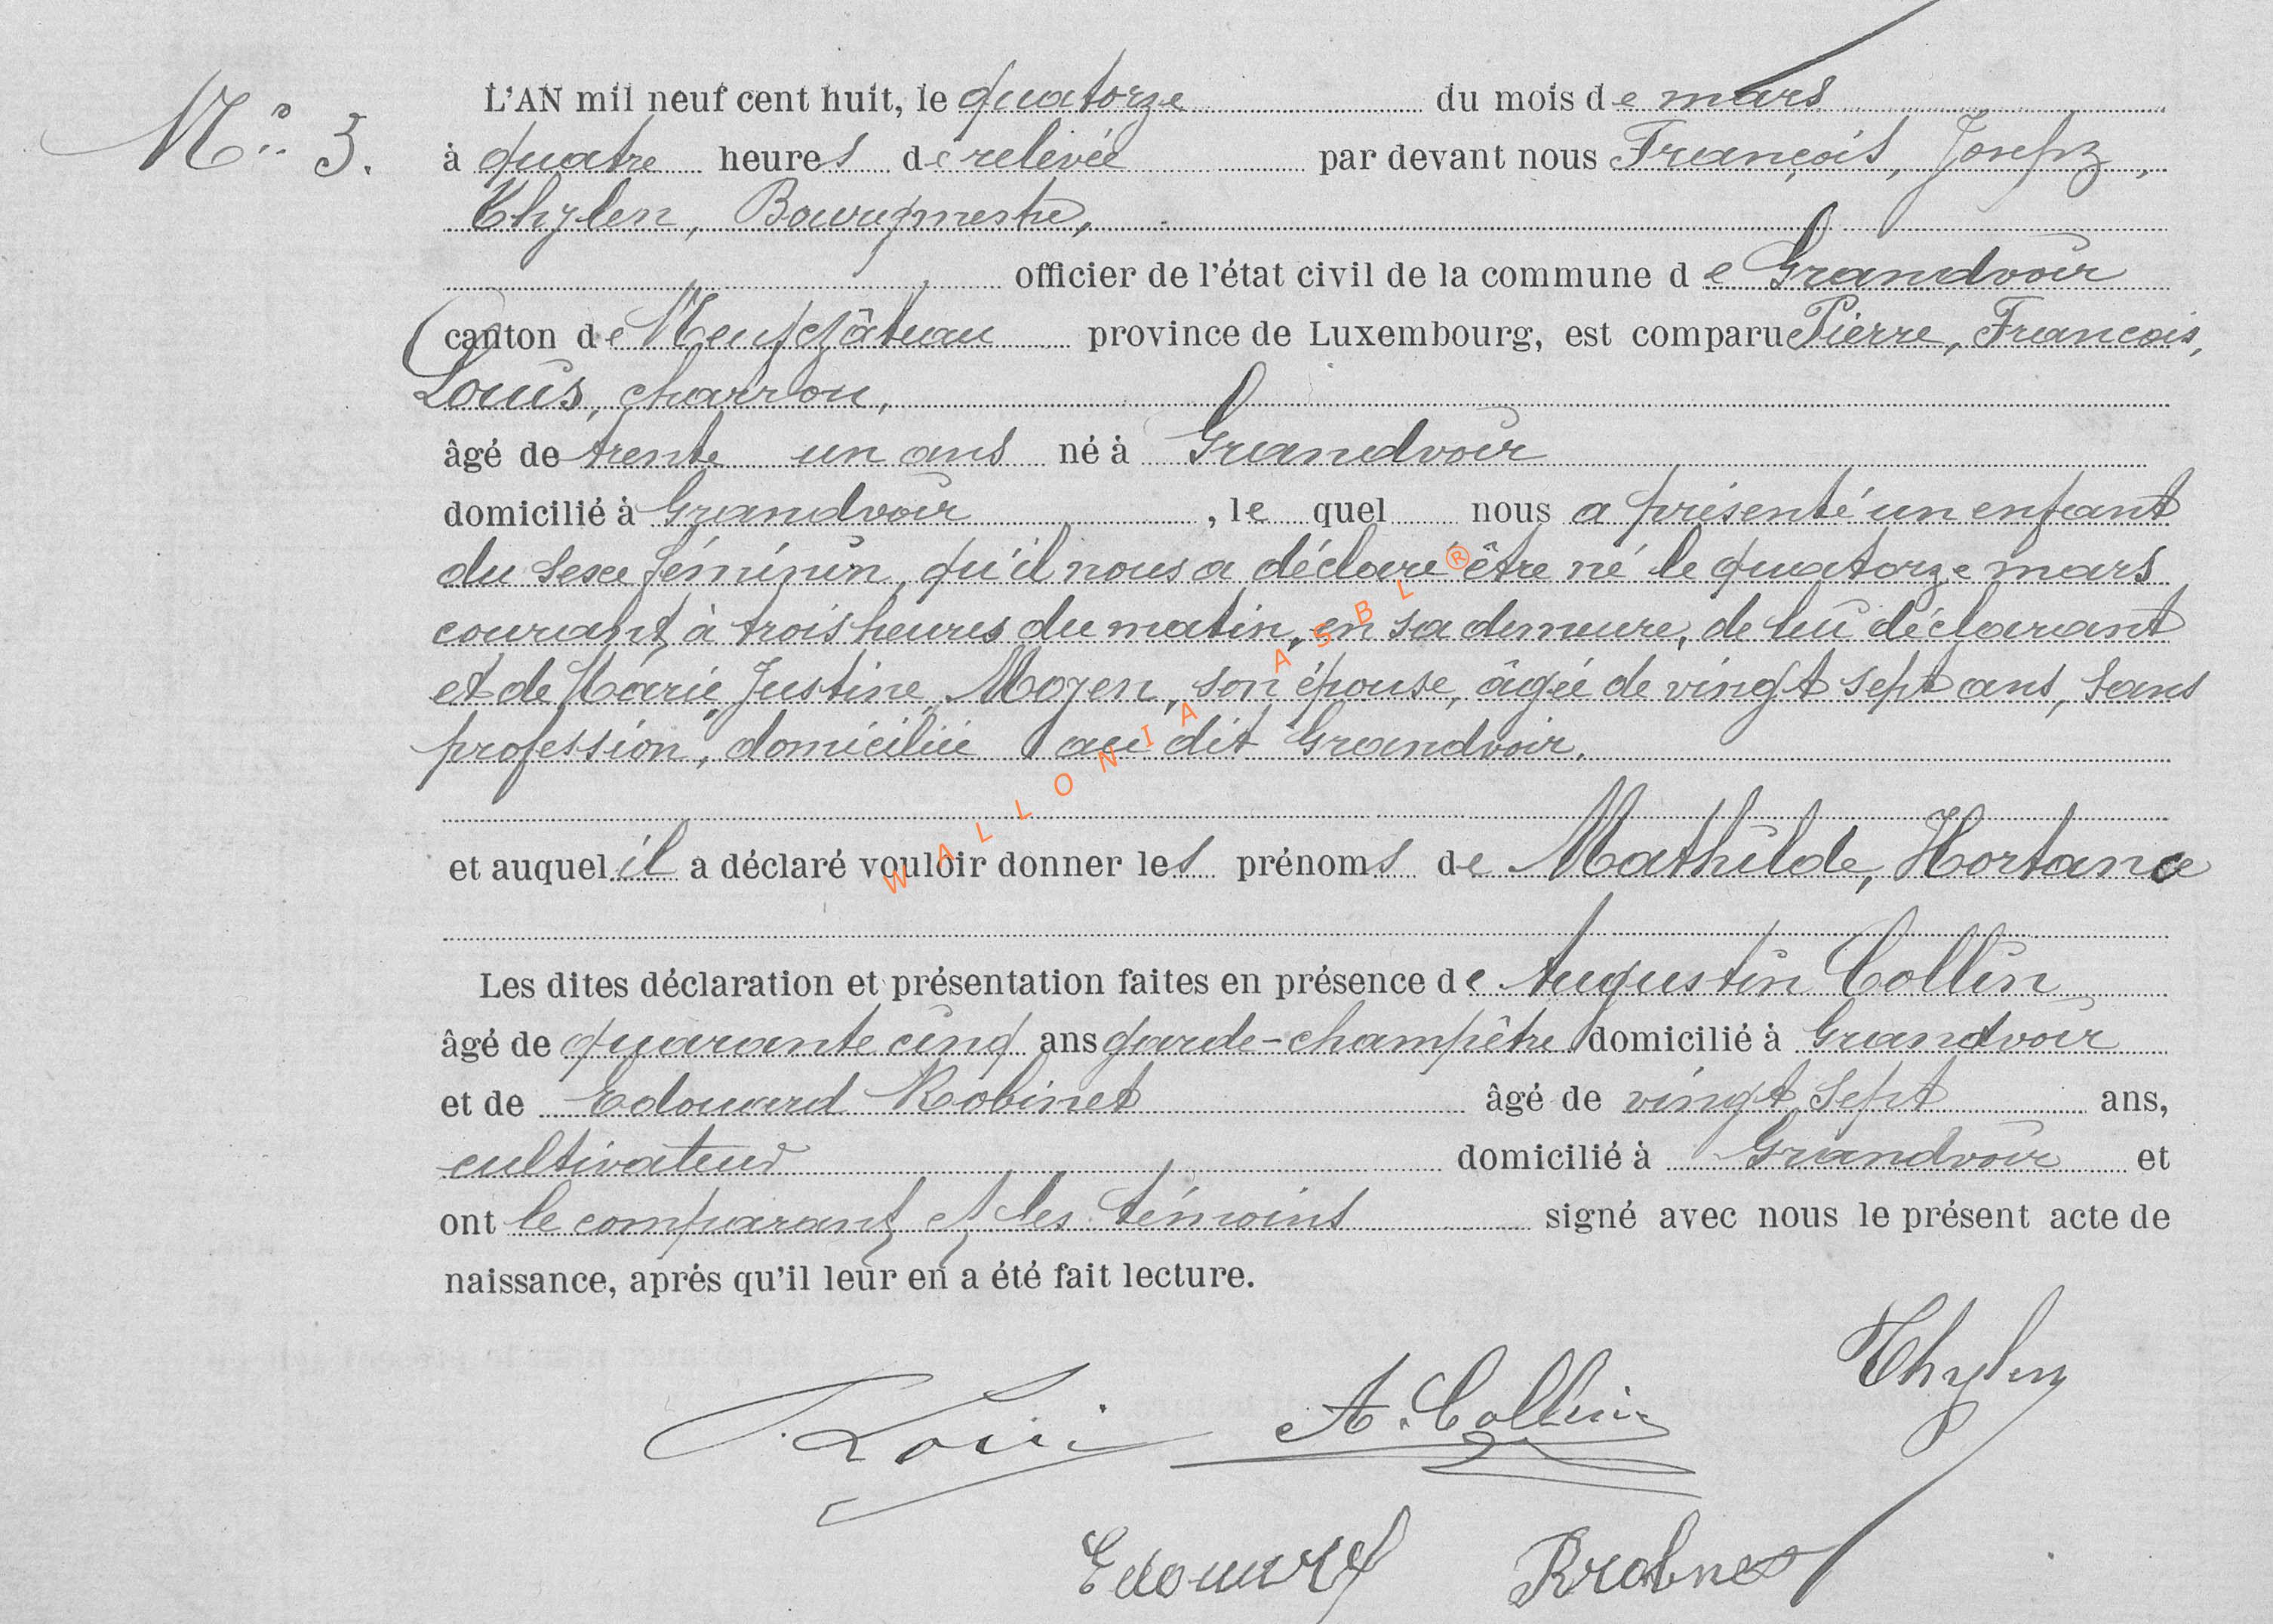 N° 3.
L'AN mil neuf cent huit, le quatorze du mois de mars
à quatre heures de relevée par devant nous François, Joseph,
Thylen, Bourgmestre,
officier de l'état civil de la commune de Grandvoir
canton de Neufchâteau province de Luxembourg, est comparu Pierre, François,
Louis, charron,
âgé de trente un ans né à Grandvoir
domicilié à Grandvoir, le quel nous a présenté un enfant
du sexe féminin, qu'il nous a déclaré être né le quatorze mars
courant, à trois heures du matin, en sa demeure, de lui déclarant
et de Marie, Justine, Moyen, son épouse, âgée de vingt sept ans, sans
profession, domiciliée au dit Grandvoir.
et auquel il a déclaré vouloir donner les prénoms de Mathilde, Hortance
Les dites déclaration et présentation faites en présence de Augustin Collin
âgé de quarante cinq ans garde-champêtre domicilié à Grandvoir
et de Edouard Robinet âgé de vingt sept ans,
cultivateur domicilié à Grandvoir et
ont le comparant et les témoins signé avec nous le présent acte de
naissance, après qu'il leur en a été fait lecture.
Thylen
A. Collin
Edouard
WALLONIA ASBL ®